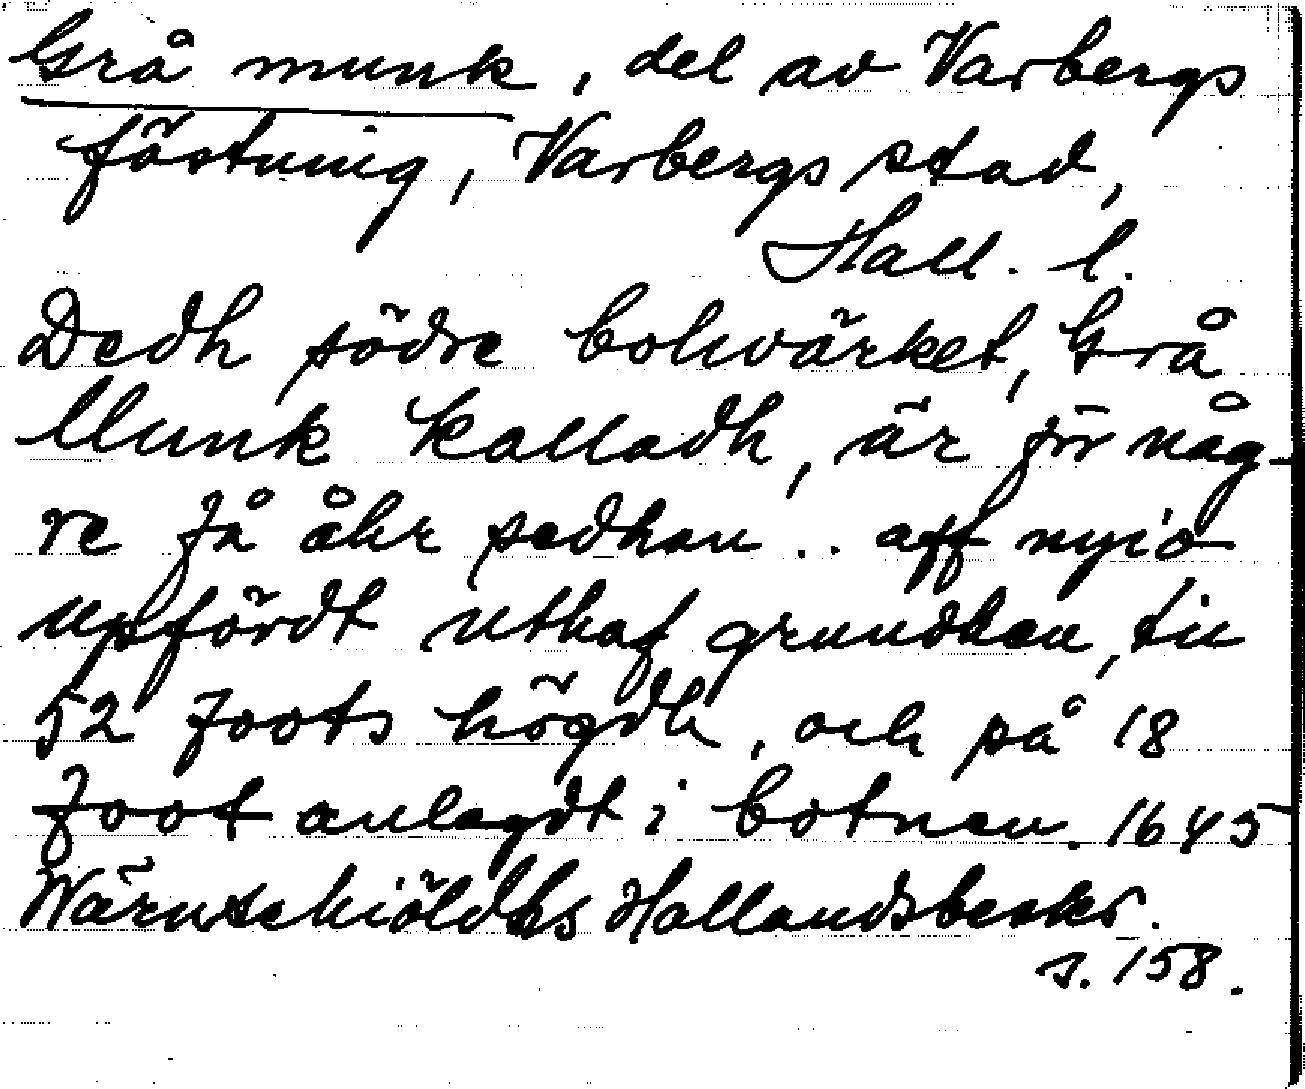 Grå munk, del av Varbergs
fästning, Varbergs stad,
Hall. l.
Dedh södre bolwärket, Grå
Munk kalladh, är för någ-
re få åhr sedhan .. aff nyio
upfördt uthaf grundhen, till
52 foots högdh, och på 18
foot anlagdt i botnen. 1645
Wärnschiöldhs Hallandsbeskr.
s. 158.